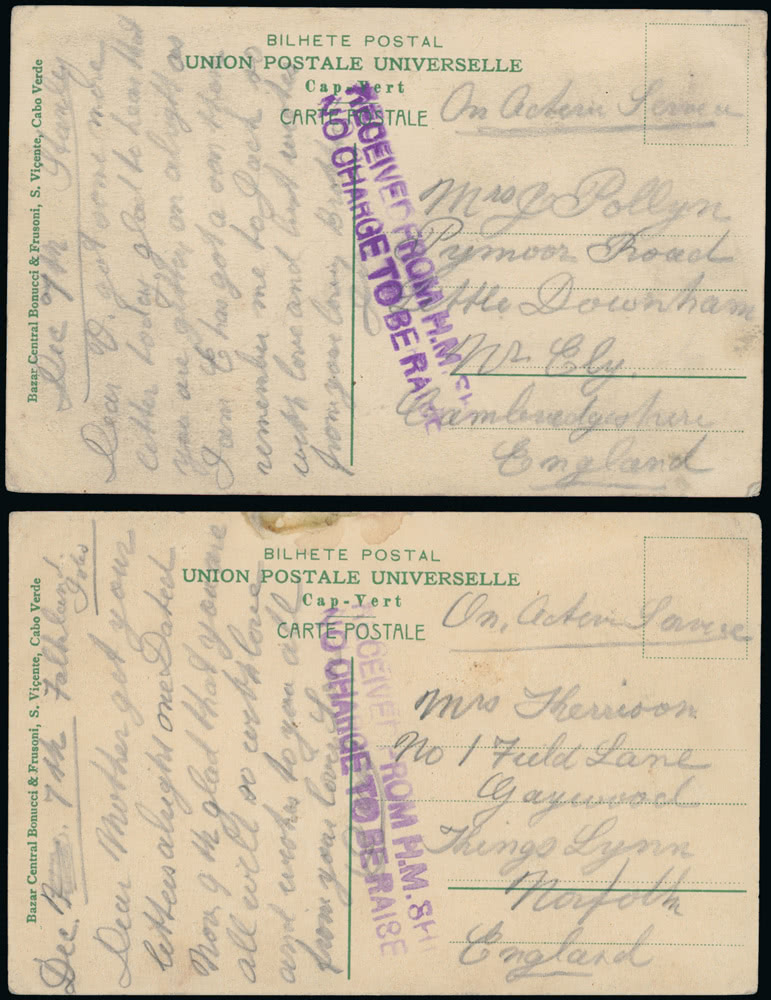 BILHETE POSTAL
UNION POSTALE UNIVERSELLE
Cap-Vert
CARTE POSTALE
Bazar Central Bonucci & Frusoni, S. Viçente, Cabo Verde
Dec 7th Stanley
Dear D. got some more
letter today, glad to hear that
you are getting on alright as
I am
remember me to Jack so
with love and best wishes
from your loving Broth
RECEIVED FROM H.M. SH
NO CHARGE TO BE RAISE
On Active Service
Mrs J Pollyn
Pymoor Road
Little Downham
Nr Ely.
Cambridgeshire
England
BILHETE POSTAL
UNION POSTALE UNIVERSELLE
Cap-Vert
CARTE POSTALE
Bazar Central Bonucci & Frusoni, S. Viçente, Cabo Verde
Dec. 7th Falkland
Isles
Dear Mother got your
letters alright one Dated
Nov 9th glad that you are
all well so with love
and wishes to you all
from your loving
RECEIVED FROM H.M. SHI
NO CHARGE TO BE RAISE
On Active Service
Mrs
No 1 Field Lane
Gaywood
Kings Lynn
Norfolk
England